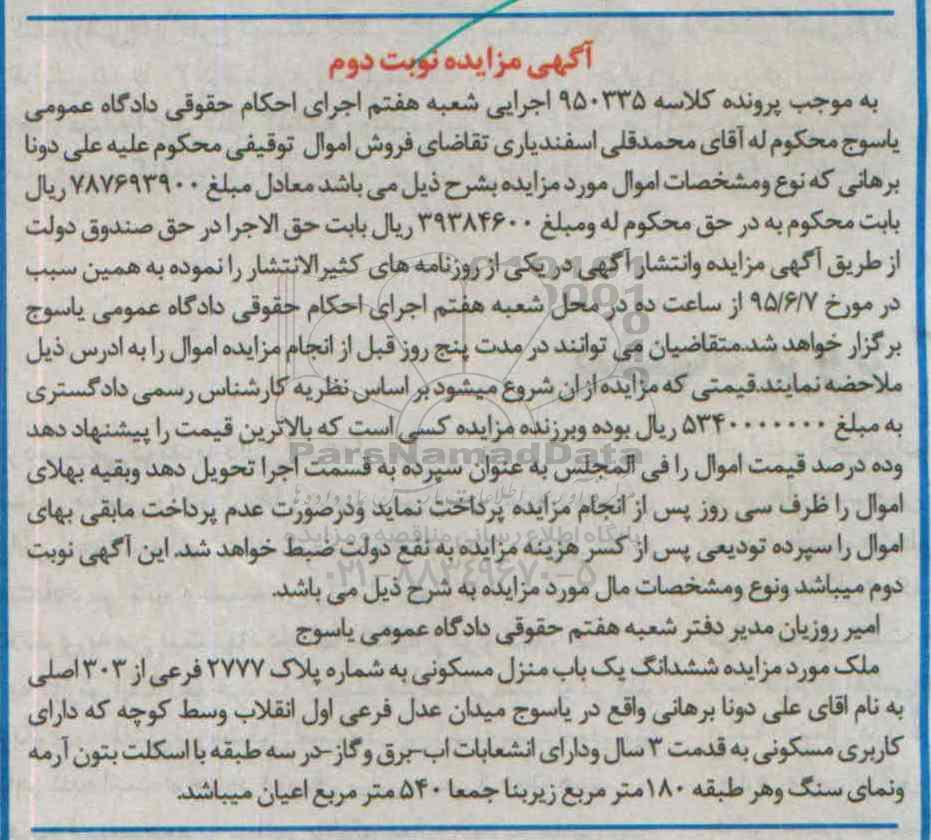 آگهی مزایده نوبت دوم
به موجب پرونده کلاسه ۹۵۰۳۳۵ اجرایی شعبه هفتم اجرای احکام حقوقی دادگاه عمومی
یاسوج محکوم له آقای محمدقلی اسفندیاری تقاضای فروش اموال توقیفی محکوم علیه علی دونا
برهانی که نوع ومشخصات اموال مورد مزایده بشرح ذیل می باشد معادل مبلغ ۷۸۷۶۹۳۹۰۰ ریال
بابت محکوم به در حق محکوم له ومبلغ ۳۹۳۸۴۶۰۰ ریال بابت حق الاجرا در حق صندوق دولت
از طریق آگهی مزایده وانتشار آگهی در یکی از روزنامه های کثیرالانتشار را نموده به همین سبب
در مورخ ۹۵/۶/۷ از ساعت ده در محل شعبه هفتم اجرای احکام حقوقی دادگاه عمومی یاسوج
برگزار خواهد شد.متقاضیان می توانند در مدت پنج روز قبل از انجام مزایده اموال را به ادرس ذیل
ملاحضه نمایند.قیمتی که مزایده از ان شروع میشود بر اساس نظریه کارشناس رسمی دادگستری
به مبلغ ۵۳۴۰۰۰۰۰۰۰ ریال بوده وبرنده مزایده کسی است که بالاترین قیمت را پیشنهاد دهد
ParsNamadData
وده درصد قیمت اموال را فی المجلس به عنوان سپرده به قسمت اجرا تحویل دهد وبقیه بهلای
اموال را ظرف سی روز پس از انجام مزایده پرداخت نماید ودرصورت عدم پرداخت مابقی بهای
پایگاه اطلاع رسانی مناقصه و مزایده
اموال را سپرده تودیعی پس از کسر هزینه مزایده به نفع دولت ضبط خواهد شد. این آگهی نوبت
۰۲۱-۸۸۳۴۹۶۷۰-۵
دوم میباشد ونوع ومشخصات مال مورد مزایده به شرح ذیل می باشد.
امیر روزیان مدیر دفتر شعبه هفتم حقوقی دادگاه عمومی یاسوج
ملک مورد مزایده ششدانگ یک باب منزل مسکونی به شماره پلاک ۲۷۷۷ فرعی از ۳۰۳ اصلی
به نام اقای علی دونا برهانی واقع در یاسوج میدان عدل فرعی اول انقلاب وسط کوچه که دارای
کاربری مسکونی به قدمت ۳ سال ودارای انشعابات اب-برق وگاز-در سه طبقه با اسکلت بتون آرمه
ونمای سنگ وهر طبقه ۱۸۰متر مربع زیربنا جمعا ۵۴۰ متر مربع اعیان میباشد.